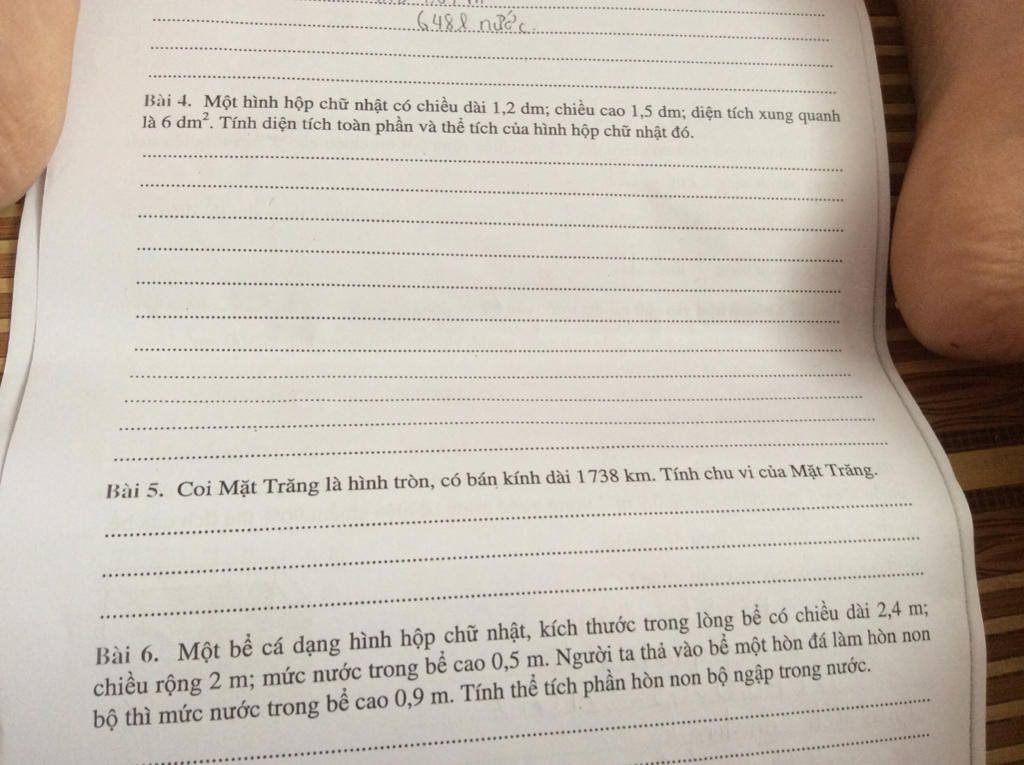 648l nước.
Bài 4. Một hình hộp chữ nhật có chiều dài 1,2 dm; chiều cao 1,5 dm; diện tích xung quanh
là 6 dm². Tính diện tích toàn phần và thể tích của hình hộp chữ nhật đó.
Bài 5. Coi Mặt Trăng là hình tròn, có bán kính dài 1738 km. Tính chu vi của Mặt Trăng.
Bài 6. Một bể cá dạng hình hộp chữ nhật, kích thước trong lòng bể có chiều dài 2,4 m;
chiều rộng 2 m; mức nước trong bể cao 0,5 m. Người ta thả vào bể một hòn đá làm hòn non
bộ thì mức nước trong bể cao 0,9 m. Tính thể tích phần hòn non bộ ngập trong nước.